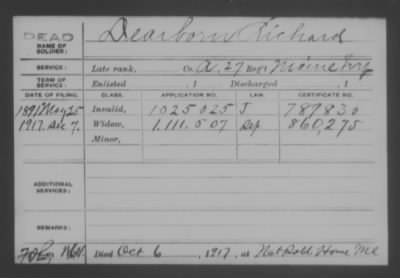 DEAD
NAME OF SOLDIER: Dearborn Richard
SERVICE: Late rank, Co. A. 27 Reg't Maine Inf
TERM OF SERVICE: Enlisted , 1 Discharged , 1
DATE OF FILING. CLASS. APPLICATION NO. LAW CERTIFICATE NO.
1891 May 25 Invalid, 1025025 J 789830
1917. Dec 7. Widow, 1.111.507 860,275
Minor,
ADDITIONAL SERVICES:
REMARKS:
Died Oct 6, 1917, at Nat Sold. Home Me